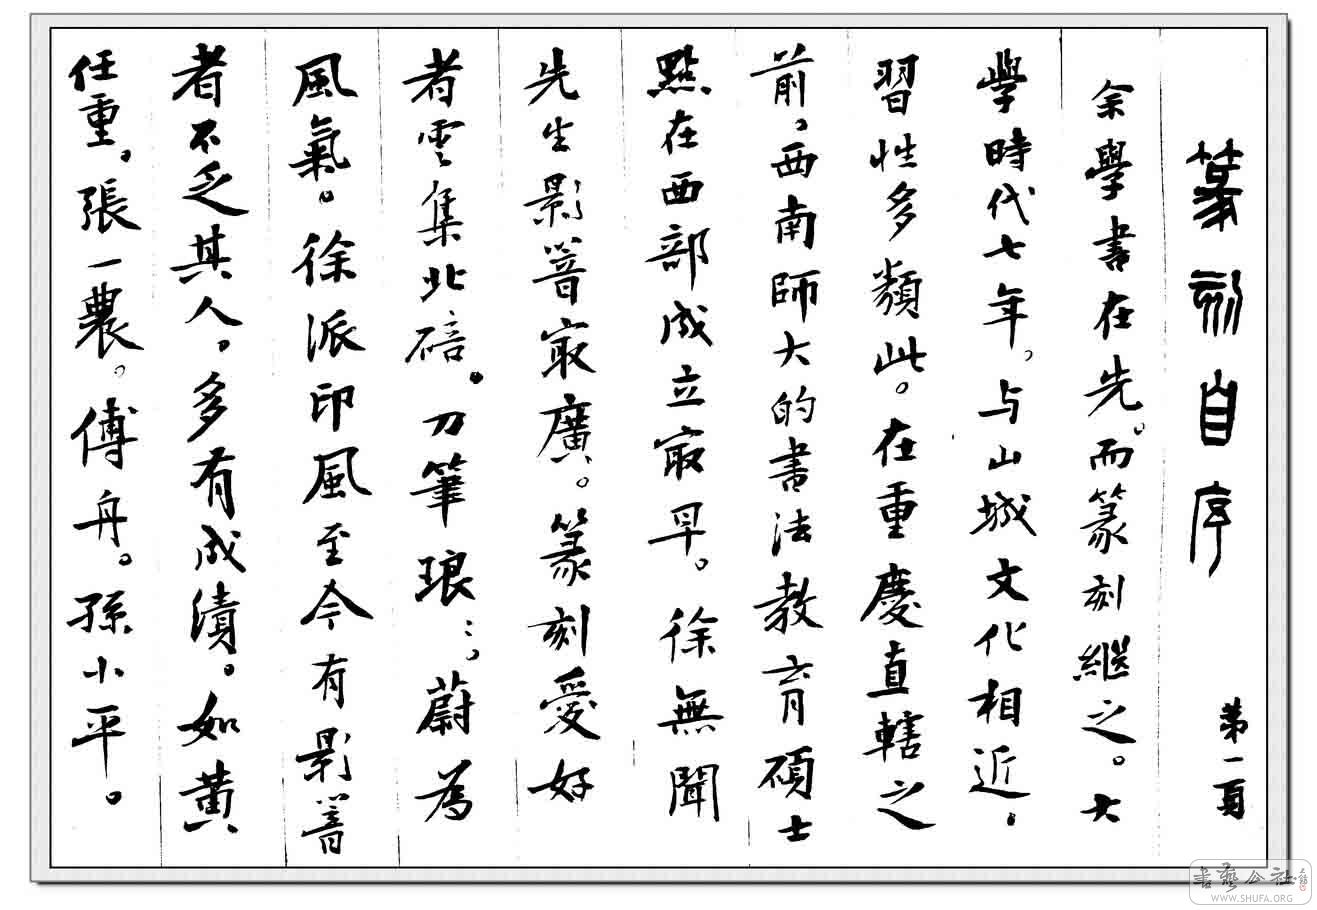 篆刻自序 第一頁
余學書在先。而篆刻繼之。大
學時代七年。与山城文化相近。
習性多類此。在重慶直轄之
前。西南師大的書法教育碩士
點在西部成立㝡早。徐無聞
先生影響㝡廣。篆刻愛好
者雲集北碚。刀筆琅:。蔚為
風氣。徐派印風至今有影響
者不乏其人。多有成績。如黃
任重。張一農。傅舟。孫小平。
書藝公社
WWW.SHUFA.ORG